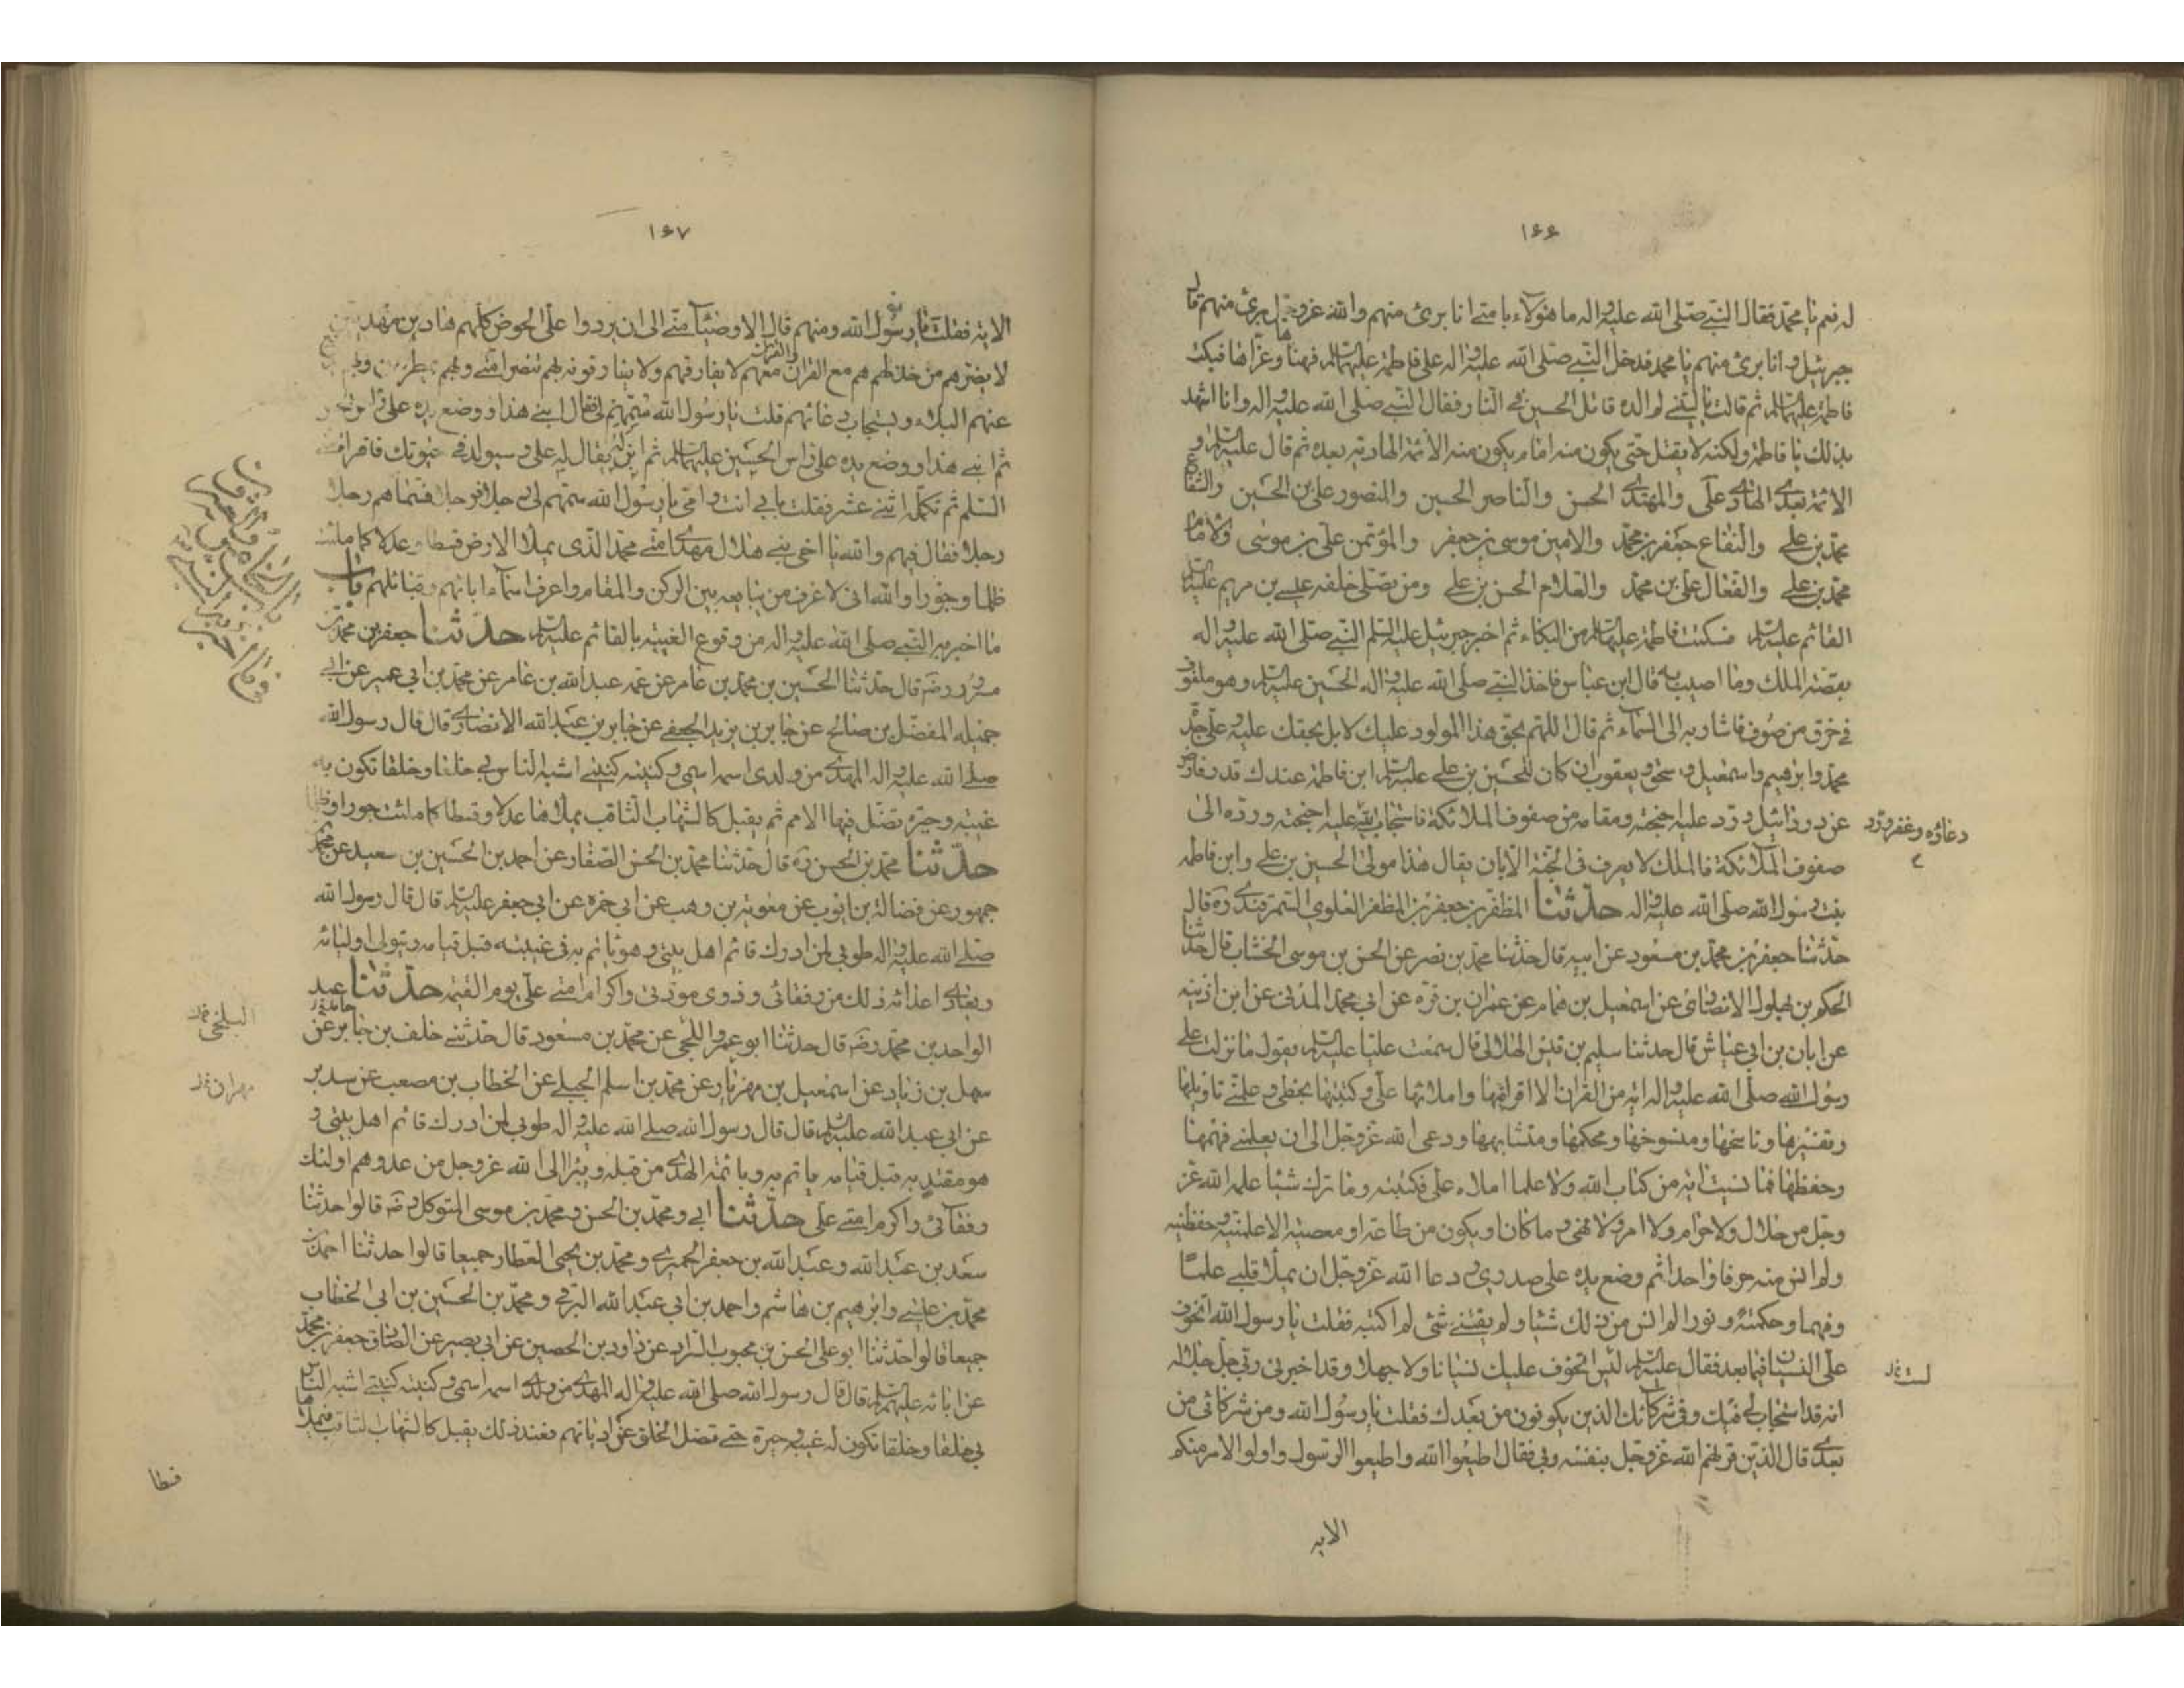 ١٦٦
له نعم يا محمد فقال النبي صلى الله عليه واله ما هؤلاء بامتي انا برئ منهم والله عز وجل برئ منهم قال
جبرئيل وانا برئ منهم يا محمد فدخل النبي صلى الله عليه واله على فاطمة عليها السلم فهناها وعزاها فبكت
فاطمة عليها السلم ثم قالت يا ليتني لم الده قاتل الحسين في النار فقال النبي صلى الله عليه واله وانا اشهد
بذلك يا فاطمة ولكنه لا يقتل حتى يكون منه امام يكون منه الائمة الهادية بعده ثم قال عليه السلم و
الائمة بعدي الهادي علي والمهتدي الحسن والناصر الحسين والمنصور علي بن الحسين والشفاع
محمد بن علي والنفاع جعفر بن محمد والامين موسى بن جعفر والمؤتمن علي بن موسى والامام
محمد بن علي والفعال علي بن محمد والعلام الحسن بن علي ومن يصلي خلفه عيسى بن مريم عليه السلم
القائم عليه السلم فسكتت فاطمة عليها السلم من البكاء ثم اخبر جبرئيل عليه السلم النبي صلى الله عليه واله
بقصة الملك وما اصيب به قال ابن عباس فاخذ النبي صلى الله عليه واله الحسين عليه السلم وهو ملفوف
في خرق من صوف فاشار به الى السماء ثم قال اللهم بحق هذا المولود عليك لا بل بحقك عليه وعلى جده
محمد وابرهيم واسمعيل واسحق ويعقوب ان كان للحسين بن علي عليه السلم ابن فاطمة عندك قدر فارض
عن دردائيل ورد عليه اجنحته ومقامه من صفوف الملائكة فاستجاب الله عليه اجنحته ورده الى
دعاؤه وغفر ورد
صفوف الملائكة فالملك لا يعرف في الجنة الا بان يقال هذا مولى الحسين بن علي وابن فاطمة
بنت رسول الله صلى الله عليه واله حدثنا المظفر بن جعفر بن المظفر العلوي السمرقندي ره قال
حدثنا جعفر بن محمد بن مسعود عن ابيه قال حدثنا محمد بن نصر عن الحسن بن موسى الخشاب قال حدثنا
الحكم بن بهلول الانصاري عن اسمعيل بن همام عن عمران بن قره عن ابي محمد المدني عن ابن اذينه
عن ابان بن ابي عياش قال حدثنا سليم بن قيس الهلالي قال سمعت عليا عليه السلم يقول ما نزلت على
رسول الله صلى الله عليه واله اية من القران الا اقرانيها واملائها علي وكتبتها بخطي وعلمني تاويلها
وتفسيرها وناسخها ومنسوخها ومحكمها ومتشابهها ودعى الله عز وجل الى ان يعلمني فهمها
وحفظها فما نسيت اية من كتاب الله ولا علما املاه علي فكتبته وما ترك شيئا علمه الله عز
وجل من حلال ولا حرام ولا امر ولا نهي وما كان او يكون من طاعته او معصيته الا علمنيه وحفظنيه
ولم انس منه حرفا واحدا ثم وضع يده على صدري ودعا الله عز وجل ان يملأ قلبي علما
وفهما وحكمة ونورا لم انس من ذلك شيئا ولم يفتني شئ لم اكتبه فقلت يا رسول الله اتخوف
على النسيان فيما بعد فقال عليه السلم ليس اتخوف عليك نسيانا ولا جهلا وقد اخبرني ربي جل جلاله
لست
انه قد استجاب لي فيك وفي شركائك الذين يكونون من بعدك فقلت يا رسول الله ومن شركائي من
بعدي قال الذين قرنهم الله عز وجل بنفسه وبي فقال اطيعوا الله واطيعوا الرسول واولوا الامر منكم
الايه
١٦٧
الاية فقلت يا رسول الله ومنهم قال الاوصياء مني الى ان يردوا علي الحوض كلهم هادين مهديين
لا يضرهم من خذلهم هم مع القران والقران معهم لا يفارقهم ولا يفارقونه بهم تنصر امتي وبهم يمطرون وبهم يدفع
عنهم البلاء ويستجاب دعائهم قلت يا رسول الله سمهم لي فقال ابني هذا ووضع يده على راس الحسن
ثم ابني هذا ووضع يده على راس الحسين عليهما السلم ثم ابن له يقال له علي وسيولد في حيوتك فاقراه مني
السلم ثم تكمله اثني عشر فقلت بابي انت وامي يا رسول الله سمهم لي رجلا فرجلا فسماهم رجلا
رجلا فقال فيهم والله يا اخي بني هلال مهدي امتي محمد الذي يملأ الارض قسطا وعدلا كما ملئت
ظلما وجورا والله اني لاعرف من يبايعه بين الركن والمقام واعرف اسماء ابائهم وقبائلهم باب
ما اخبر به النبي صلى الله عليه واله من وقوع الغيبة بالقائم عليه السلم حدثنا جعفر بن محمد بن
مسرور رضه قال حدثنا الحسين بن محمد بن عامر عن عمه عبد الله بن عامر عن محمد بن ابي عمير عن ابي
جميله المفضل بن صالح عن جابر بن يزيد الجعفي عن جابر بن عبد الله الانصاري قال قال رسول الله
صلى الله عليه واله المهدي من ولدي اسمه اسمي وكنيته كنيتي اشبه الناس بي خلقا وخلقا تكون به
غيبة وحيرة تضل فيها الامم ثم يقبل كالشهاب الثاقب يملأها عدلا وقسطا كما ملئت جورا وظلما
حدثنا محمد بن الحسن ره قال حدثنا محمد بن الحسن الصفار عن احمد بن الحسين بن سعيد عن محمد بن
جمهور عن فضالة بن ايوب عن معوية بن وهب عن ابي حمزه عن ابي جعفر عليه السلم قال قال رسول الله
صلى الله عليه واله طوبى لمن ادرك قائم اهل بيتي وهو ياتم به في غيبته قبل قيامه ويتولى اوليائه
ويعادي اعدائه ذلك من رفقائي وذوي مودتي واكرم امتي علي يوم القيمة حدثنا عبد
الواحد بن محمد رضه قال حدثنا ابو عمرو اللجي عن محمد بن مسعود قال حدثني خلف بن جابر عن
البلخي
حامد
سهل بن زياد عن اسمعيل بن مهزيار عن محمد بن اسلم الجبلي عن الخطاب بن مصعب عن سدير
مهران
عن ابي عبد الله عليه السلم قال قال رسول الله صلى الله عليه واله طوبى لمن ادرك قائم اهل بيتي و
هو مقتد به قبل قيامه ياتم به وبائمة الهدى من قبله ويبرأ الى الله عز وجل من عدوهم اولئك
رفقائي واكرم امتي علي حدثنا ابي ومحمد بن الحسن ومحمد بن موسى المتوكل رضه قالوا حدثنا
سعد بن عبد الله وعبد الله بن جعفر الحميري ومحمد بن يحيى العطار جميعا قالوا حدثنا احمد بن
محمد بن عيسى وابرهيم بن هاشم واحمد بن ابي عبد الله البرقي ومحمد بن الحسين بن ابي الخطاب
جميعا قالوا حدثنا ابو علي الحسن بن محبوب السراد عن داود بن الحصين عن ابي بصير عن الصادق جعفر بن محمد
عن ابائه عليهم السلم قال قال رسول الله صلى الله عليه واله المهدي من ولدي اسمه اسمي وكنيته كنيتي اشبه الناس
بي خلقا وخلقا تكون له غيبة وحيرة حتى تضل الخلق عن اديانهم فعند ذلك يقبل كالشهاب الثاقب فيملأها
قسطا